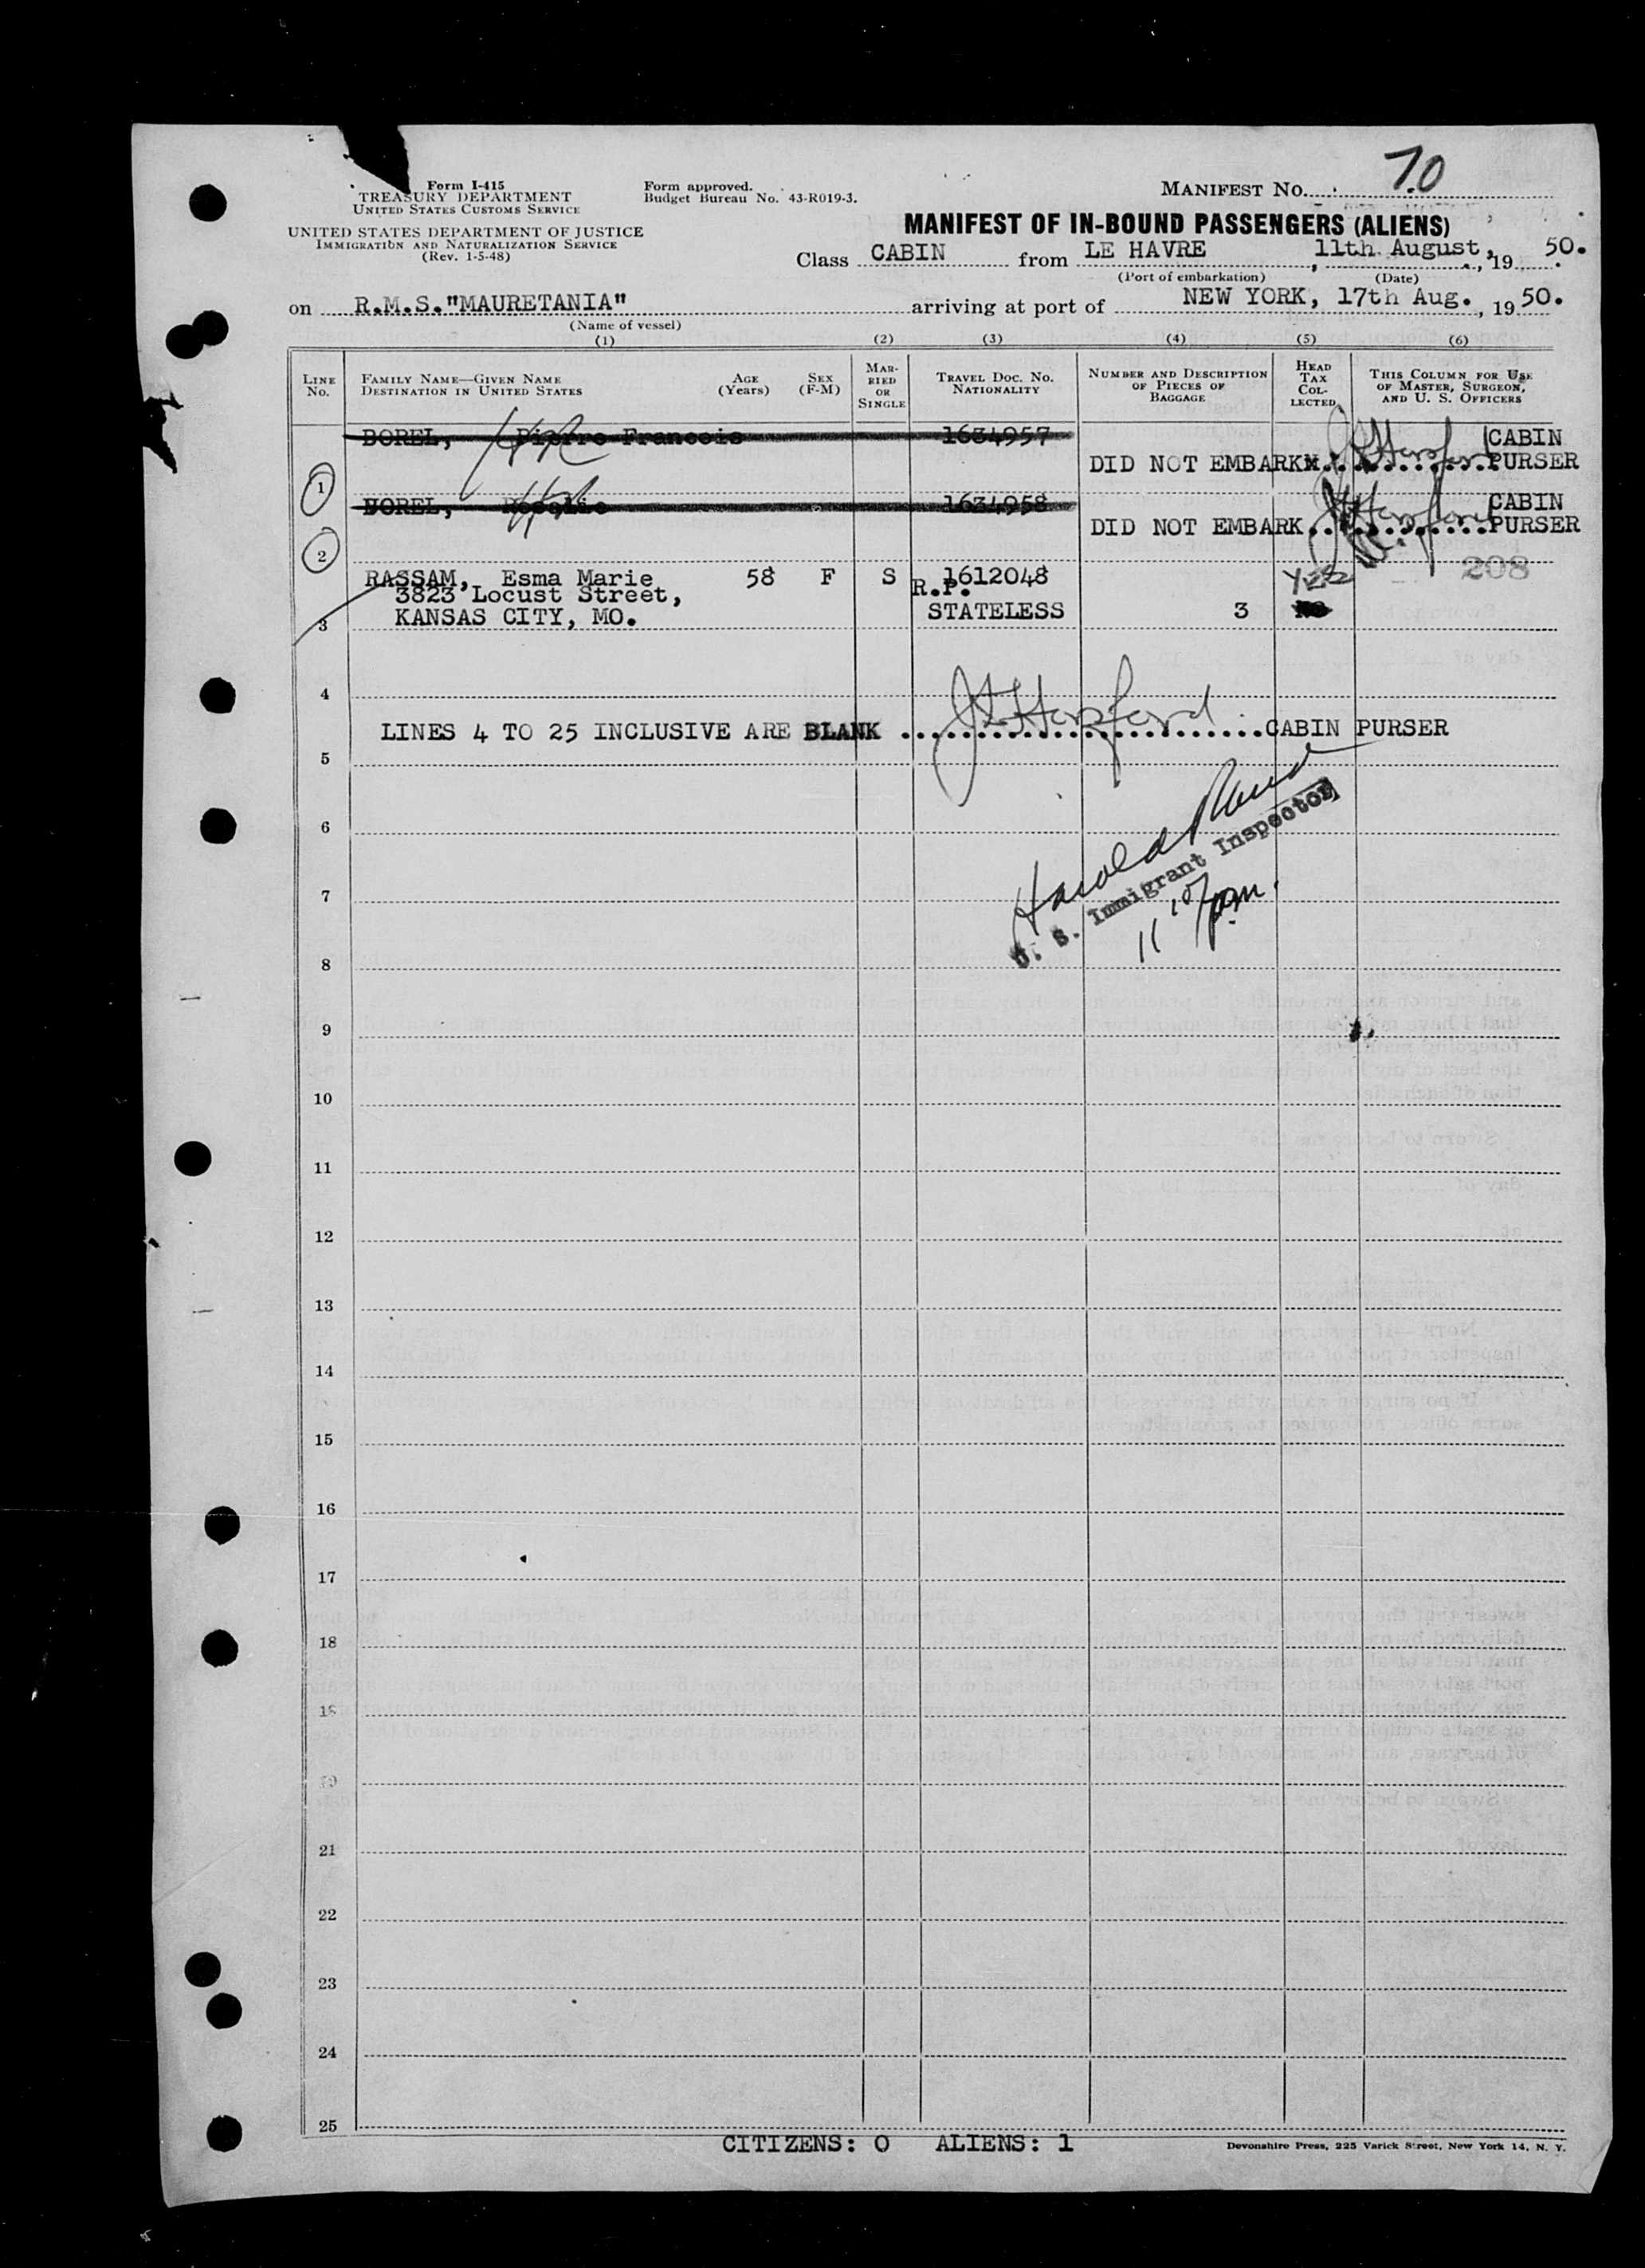 Form I-415
TREASURY DEPARTMENT
UNITED STATES CUSTOMS SERVICE
UNITED STATES DEPARTMENT OF JUSTICE
IMMIGRATION AND NATURALIZATION SERVICE
(Rev. 1-5-48)
Form approved.
Budget Bureau No. 43-R019-3.
MANIFEST No. 70
MANIFEST OF IN-BOUND PASSENGERS (ALIENS)
Class CABIN from LE HAVRE, 11th August, 1950.
(Port of embarkation) (Date)
on R.M.S."MAURETANIA" arriving at port of NEW YORK, 17th Aug., 1950.
(Name of vessel)
(1) (2) (3) (4) (5) (6)
LINE No. FAMILY NAME—GIVEN NAME DESTINATION IN UNITED STATES AGE (Years) SEX (F-M) MARRIED OR SINGLE TRAVEL DOC. No. NATIONALITY NUMBER AND DESCRIPTION OF PIECES OF BAGGAGE HEAD TAX COLLECTED THIS COLUMN FOR USE OF MASTER, SURGEON, AND U. S. OFFICERS
BOREL, Pierre Francois 1634957 CABIN
DID NOT EMBARK PURSER
1
BOREL, 1634958 CABIN
DID NOT EMBARK PURSER
2
208
RASSAM, Esma Marie 58 F S 1612048 YES
3823 Locust Street, R.P.
3 KANSAS CITY, MO. STATELESS 3 NO
4
LINES 4 TO 25 INCLUSIVE ARE BLANK CABIN PURSER
5
6
Harold
U. S. Immigrant Inspector
7
8
9
10
11
12
13
14
15
16
17
18
19
21
22
23
24
25
CITIZENS: 0 ALIENS: 1
Devonshire Press, 225 Varick Street, New York 14, N. Y.